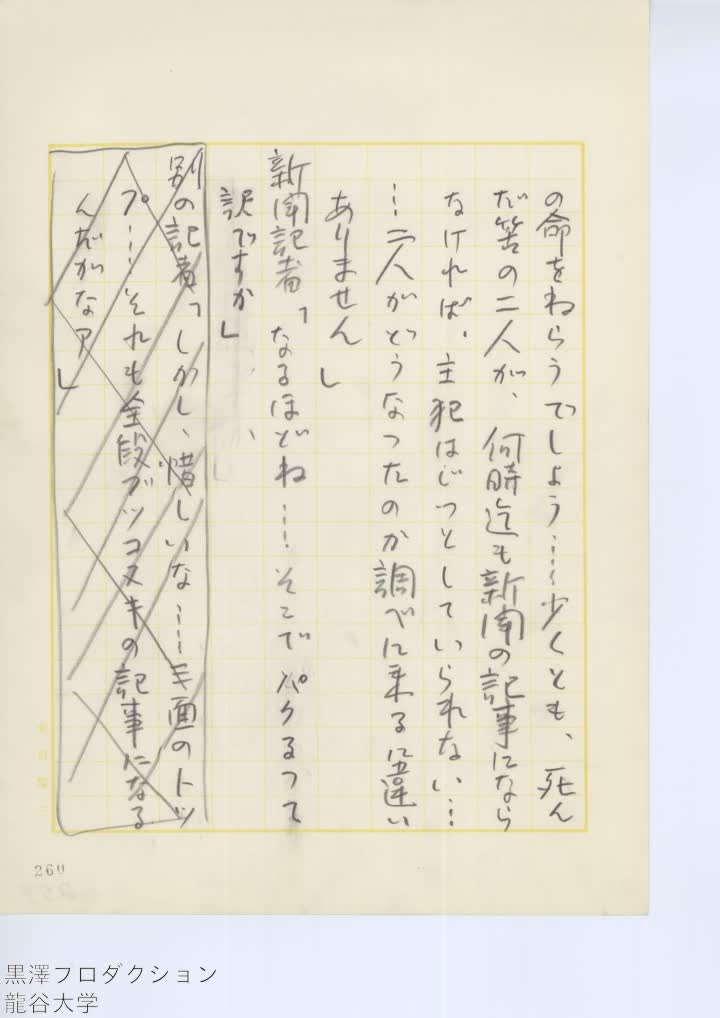 の命をねらうでしよう……少くとも、死ん
だ筈の二人が、何時迄も新聞の記事になら
なければ、主犯はじつとしていられない…
…二人がどうなつたのか調べに来るに違い
ありません」
新聞記者「なるほどね……そこでパクるつて
訳ですか」
別の記者「しかし、惜しいな……三面のトツ
プ……それも全段ブツコヌキの記事になる
んだがなア」
260
黒澤プロダクション
龍谷大学